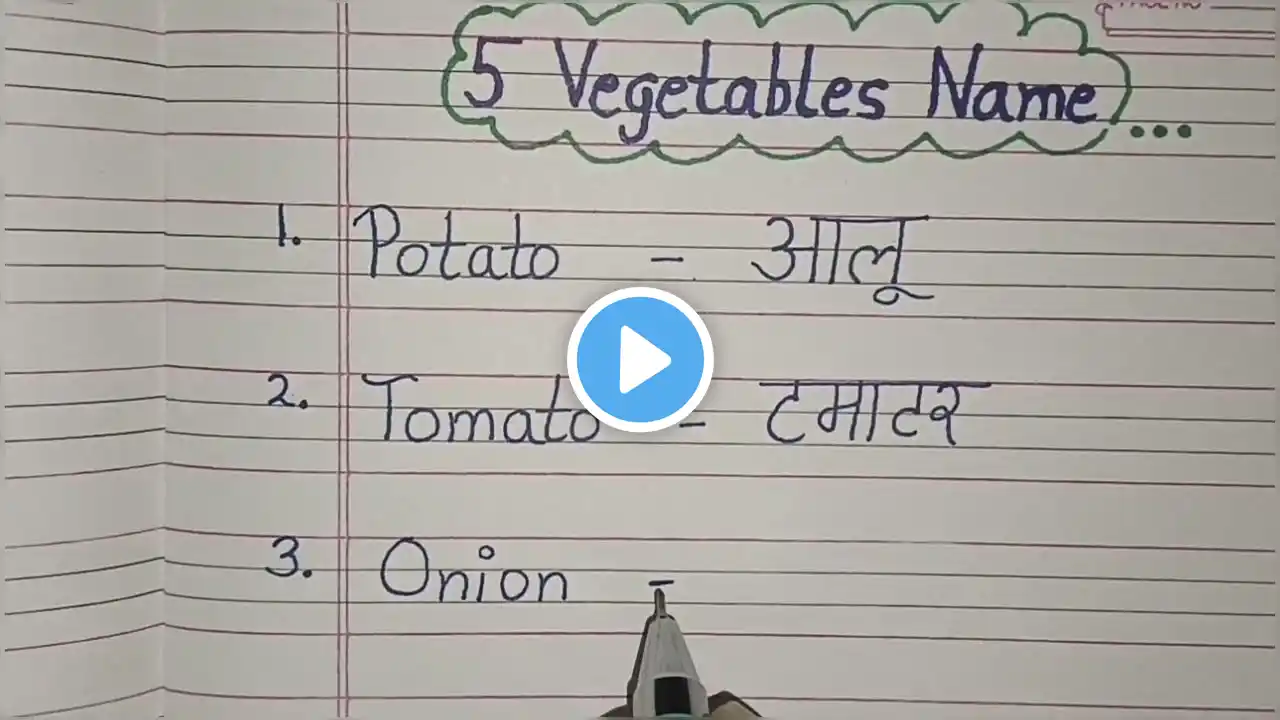 5 Vegetables Name...
1. Potato - आलू
2. Tomato - टमाटर
3. Onion -